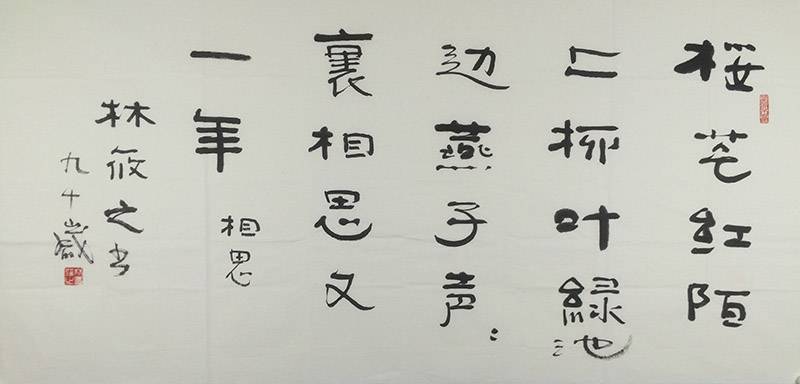 桜花红陌
上柳叶緑池
边燕子声〻
裏相思又
一年
相思
林筱之书
九十歲